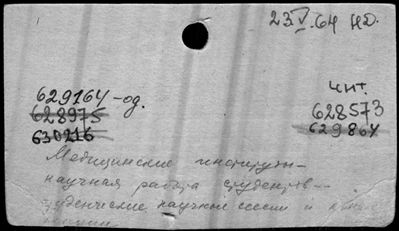 23.V.64 НО.
629164-од.
628975
630216
чит.
628573
629864
Медицинские институты--
научная работа студентов--
студенческие научные сессии и